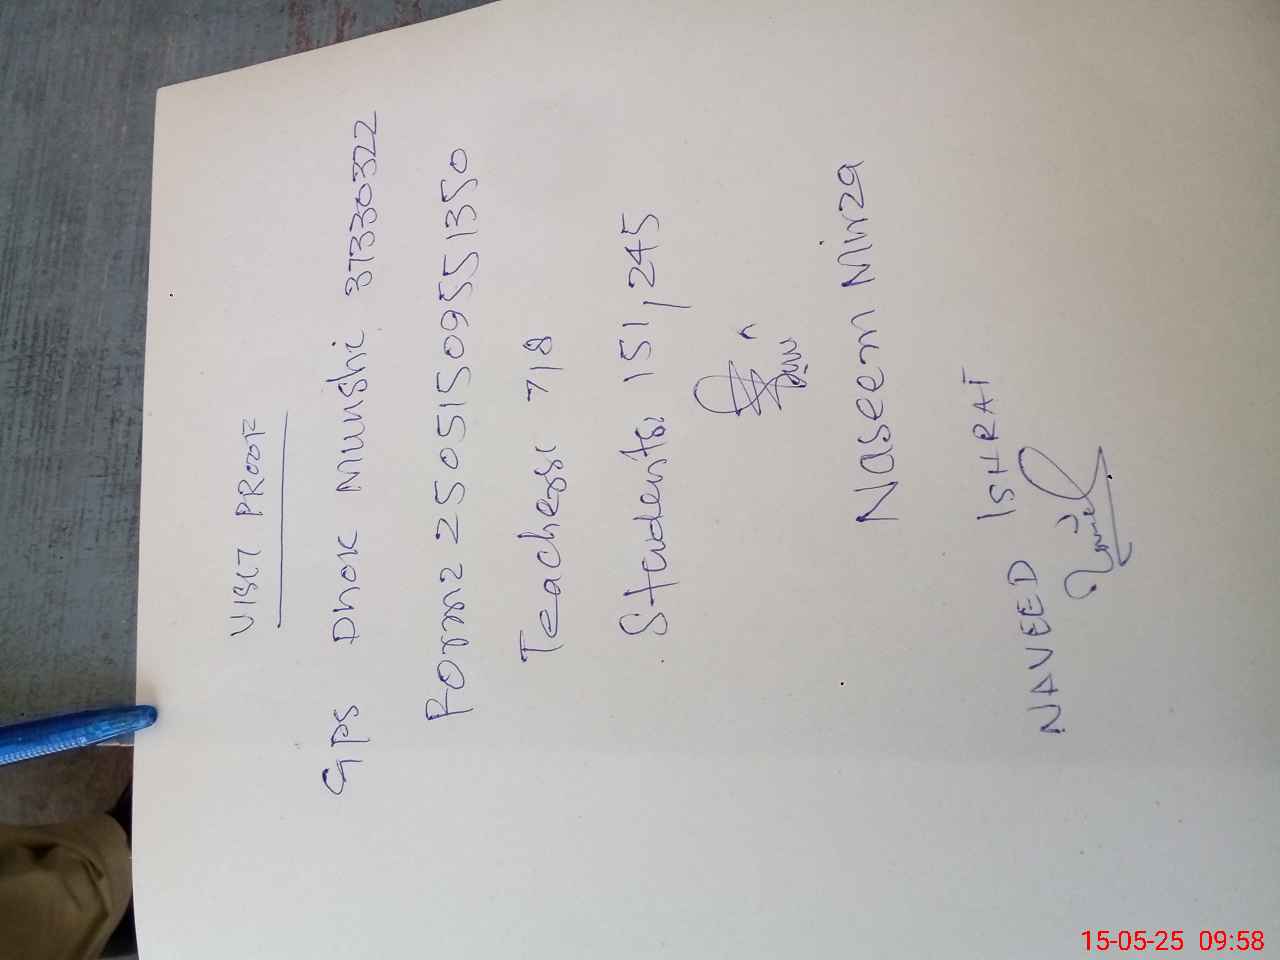 VISIT PROOF
GPS Dhok Munshi 37330322
Form: 250515095513​50
Teachers: 7/8
Students: 151/245
Naseem Mirza
NAVEED ISHRAT
15-05-25 09:58